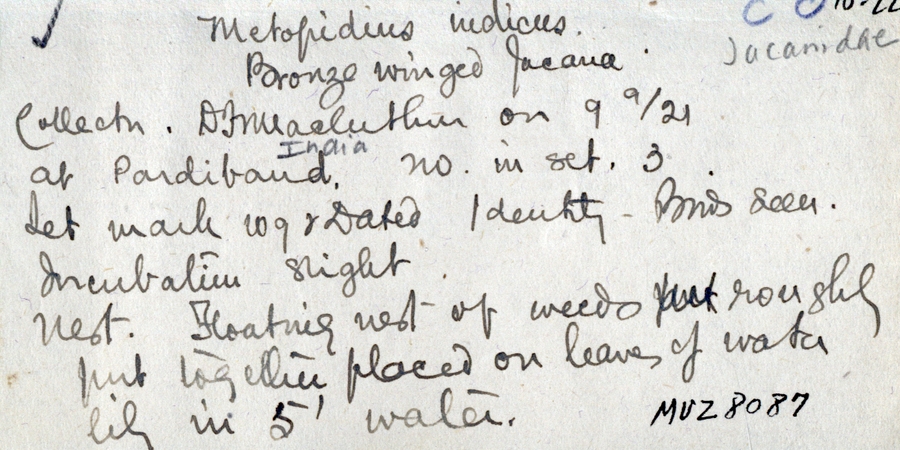 Metopidius indicus.
Bronze winged Jacana.
Jacanidae
Collectr. on 9 9/21
India
at Pardiband. No. in set. 3
Set mark 109 & Dated Identity - Birds seen.
Incubation slight
Nest. Floating nest of weeds roughly
put together placed on leaves of water
lily in 5' water.
MVZ 8087